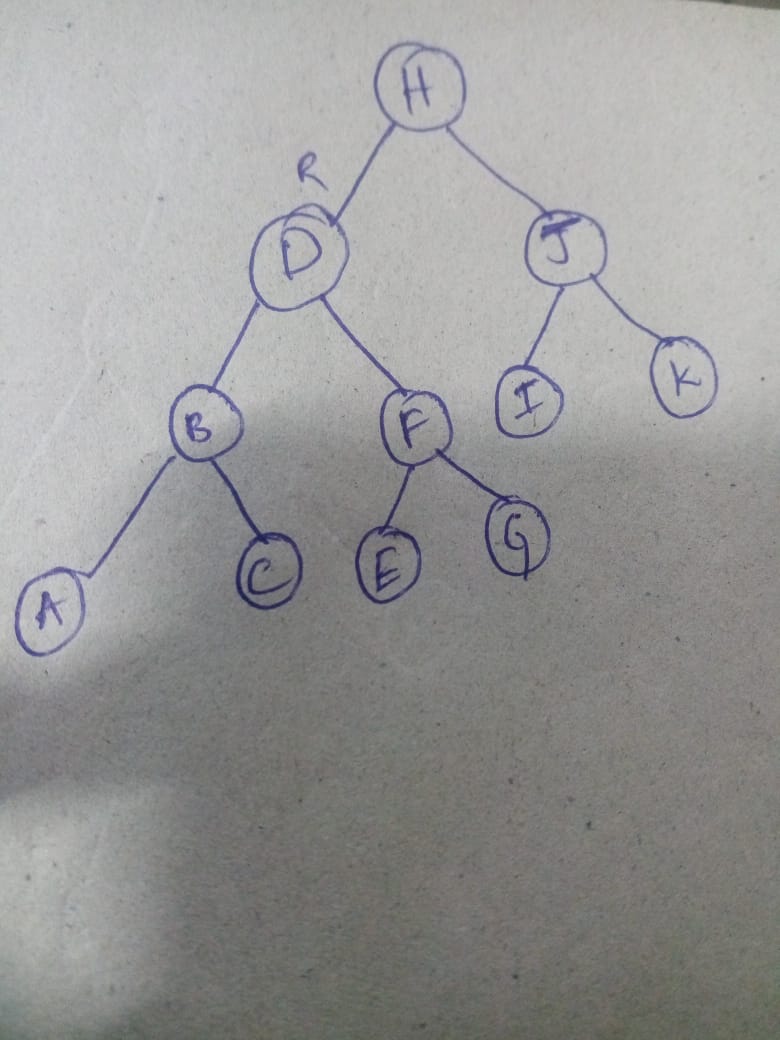 H
R
D
J
B
F
I
K
A
C
E
G